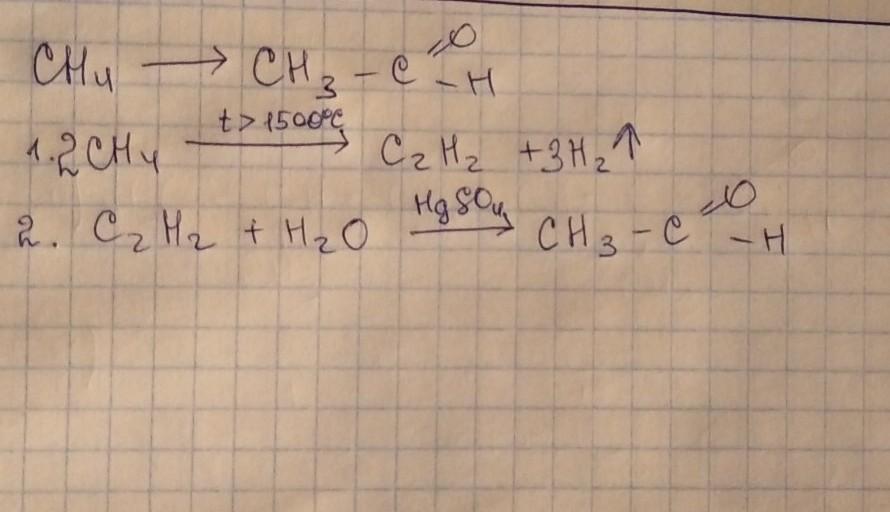 CH₄ → CH₃ – C =O – H
1. 2CH₄ t > 1500°C → C₂H₂ + 3H₂↑
2. C₂H₂ + H₂O HgSO₄ → CH₃ – C =O – H